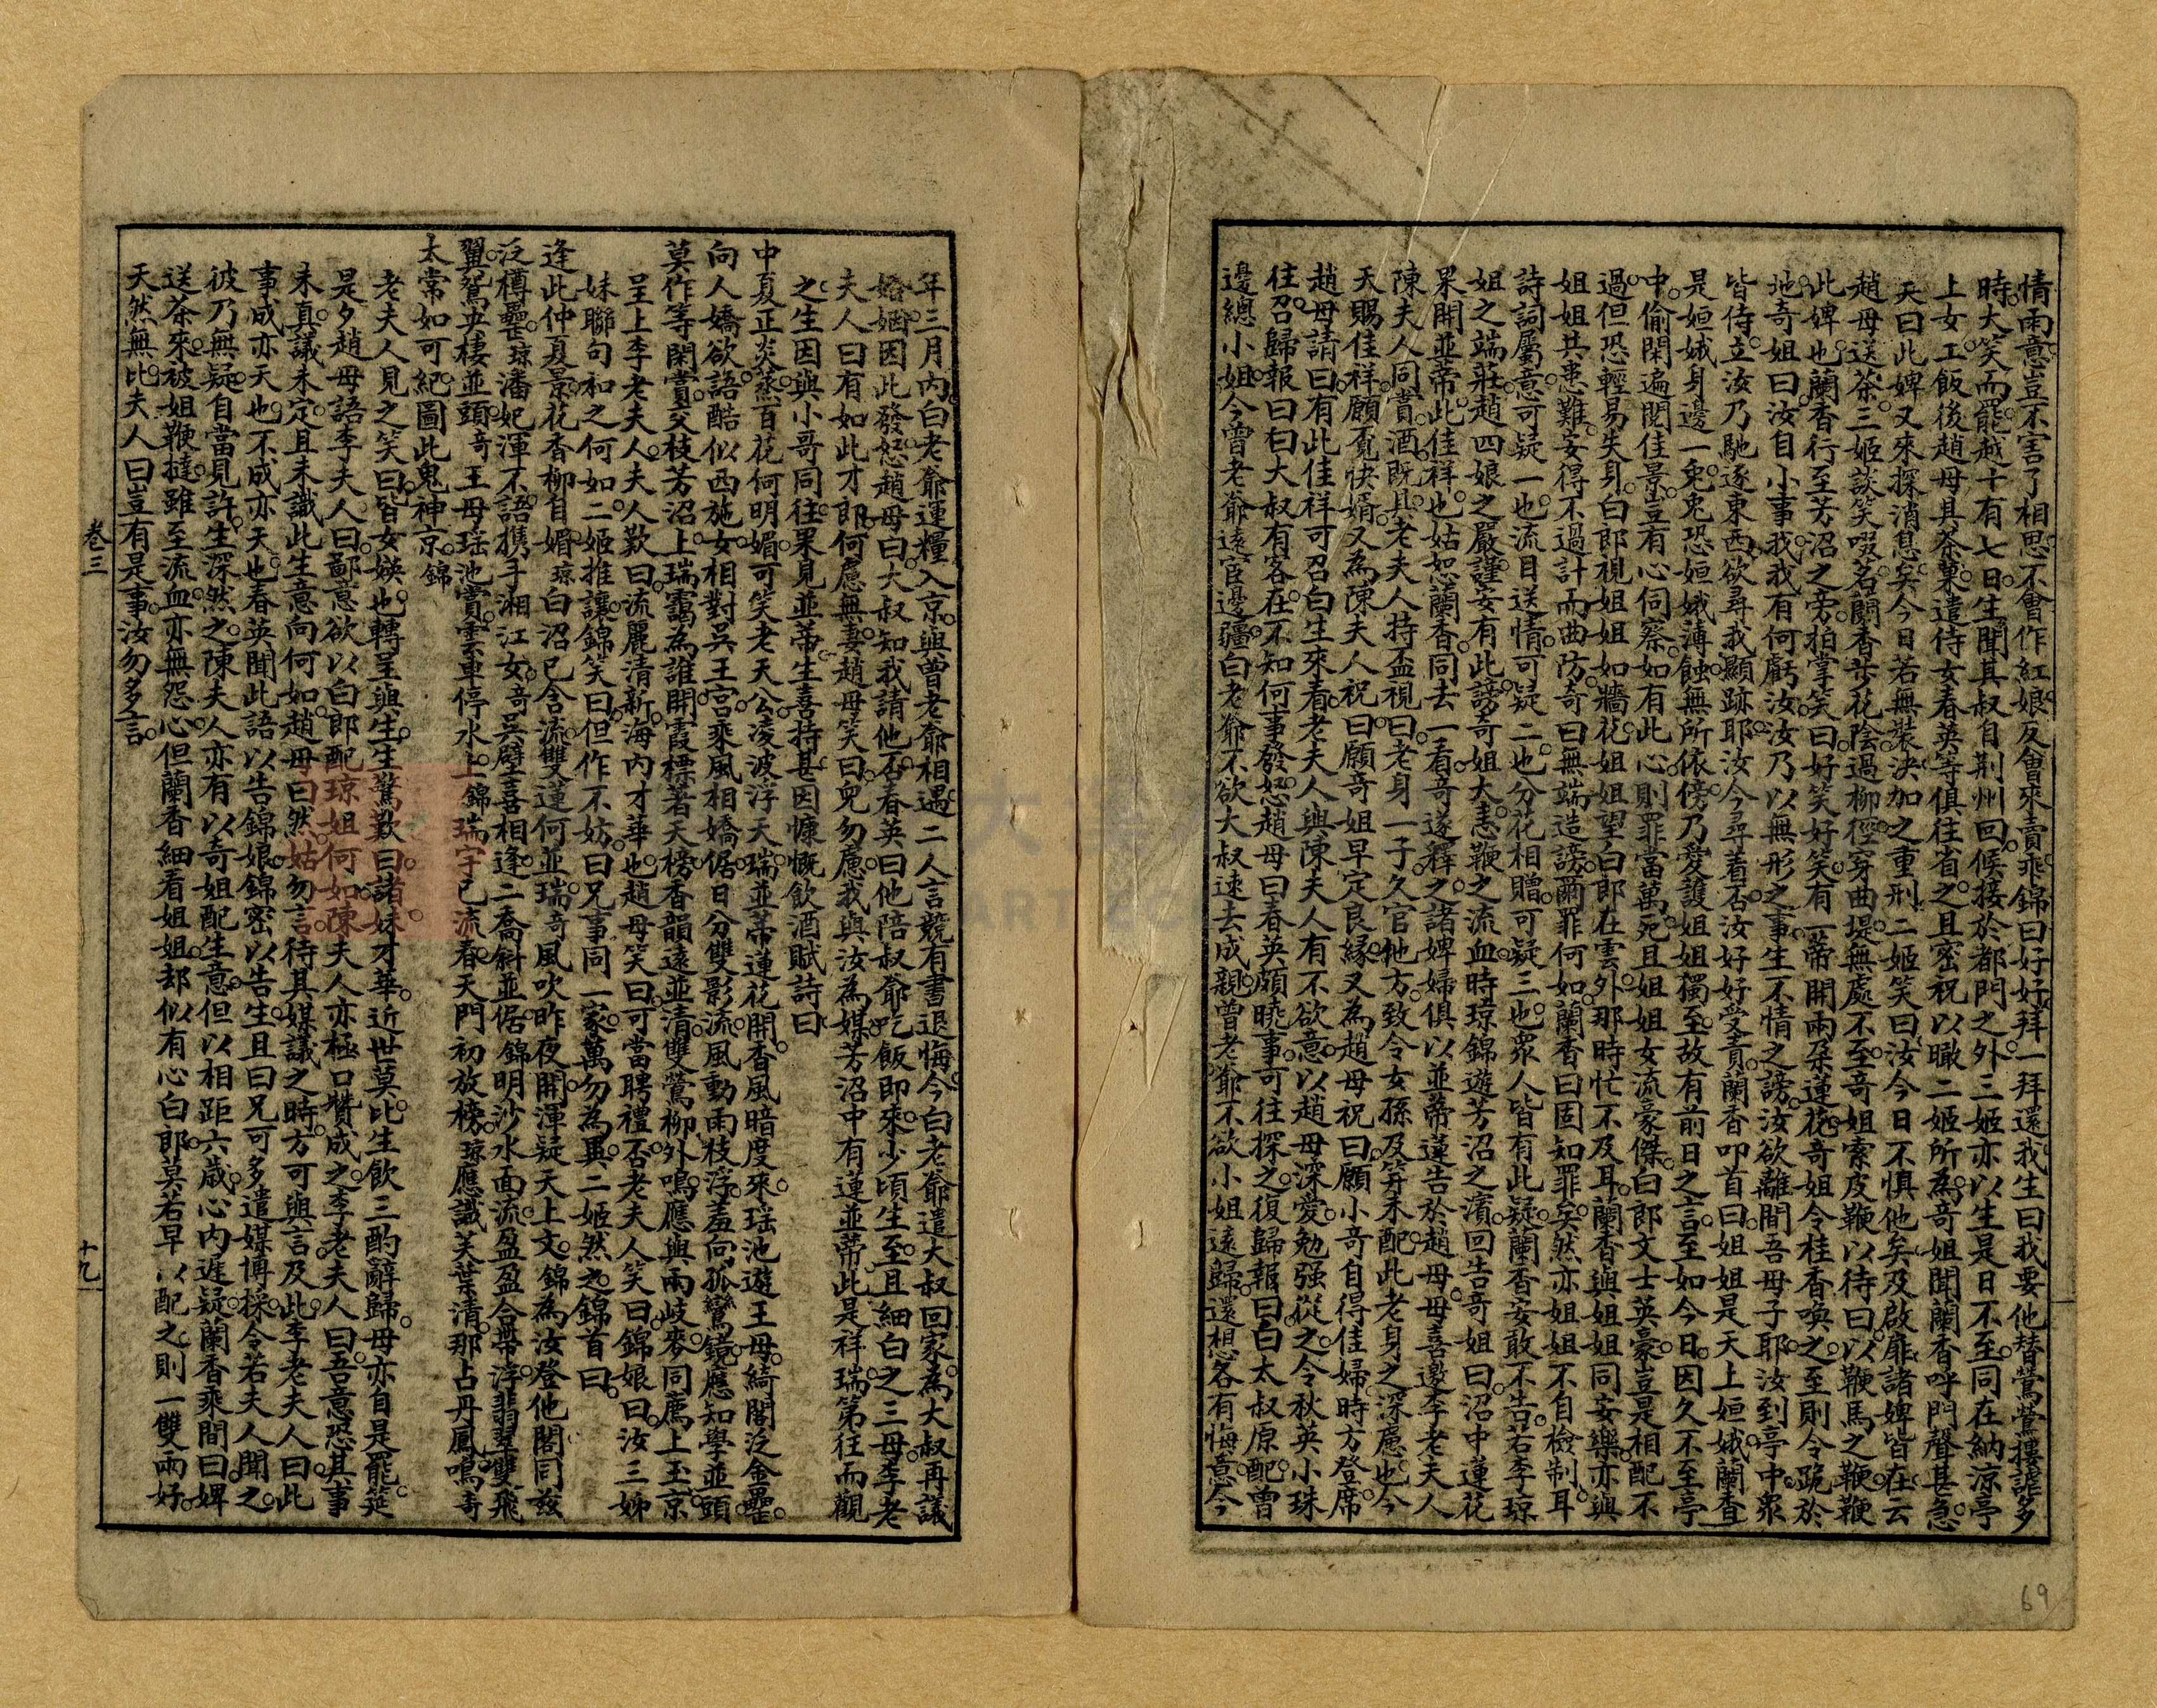 情雨意豈不害了相思不會作紅娘反會來賣乖錦曰好好拜一拜還我生曰我要他替鶯鶯摟謔多
時大笑而罷越十有七日生聞其叔自荆州回候接於都門之外三姬亦以生是日不至同在納涼亭
上女工飯後趙母具茶菓遣侍女春英等俱往省之且密祝以瞰二姬所為奇姐聞蘭香呼門聲甚急
天曰此婢又來探消息矣今日若無裝決加之重刑二姬笑曰汝今日不惧他矣及啟扉諸婢皆在云
趙母送茶三姬談笑啜茗蘭香共花陰過柳徑穿曲堤無處不至奇姐索皮鞭以待曰以鞭馬之鞭鞭
此婢也蘭香行至芳沼之旁拍掌笑曰好笑好笑有一蒂開兩朶蓮花奇姐令桂香喚之至則令跪於
地奇姐曰汝自小事我我有何虧汝汝乃以無形之事生不情之謗汝欲離間吾母子耶汝到亭中衆
皆侍立汝乃馳逐東西欲尋我顯跡耶汝今尋着否汝好好受責蘭香叩首曰姐姐是天上姮娥蘭香
是姮娥身邊一兔兔恐姮娥薄蝕無所依傍乃愛護姐姐獨至故有前日之言至如今日因久不至亭
中偷閑遍閱佳景豈有心伺察如有此心則罪當萬死且姐姐女流豪傑白郎文士英豪豈是相配不
過但恐輕易失身白郎視姐姐如牆花姐姐望白郎在雲外那時忙不及耳蘭香與姐姐同安樂亦與
姐姐共患難安得不過計而曲防奇曰無端造謗爾罪何如蘭香曰固知罪矣然亦姐姐不自檢制耳
詩詞屬意可疑一也流目送情可疑二也分花相贈可疑三也衆人皆有此疑蘭香安敢不告若李瓊
姐之端莊趙四娘之嚴謹安有此謗奇姐大恚鞭之流血時瓊錦遊芳沼之濱回告奇姐曰沼中蓮花
果開並蒂此佳祥也姑恕蘭香同去一看奇遂釋之諸婢婦俱以並蒂蓮告於趙母母喜邀李老夫人
陳夫人同賞酒既具老夫人持盃視曰老身一子久官他方致令女孫及笄未配此老身之深慮也今
天賜佳祥願覓快婿又為陳夫人祝曰願奇姐早定良緣又為趙母祝曰願小哥自得佳婦時方登席
趙母請曰有此佳祥可召白生來看老夫人與陳夫人有不欲意以趙母深愛勉强從之令秋英小珠
往召歸報曰白大叔有客在不知何事發怒趙母曰春英頗曉事可往探之復歸報曰白太叔原配曾
邊總小姐今曾老爺遠宦邊疆白老爺不欲大叔遠去成親曾老爺不欲小姐遠歸還想各有悔意今
年三月內白老爺運糧入京與曾老爺相遇二人言競有書退悔今白老爺遣大叔回家為大叔再議
婚姻因此發怒趙母曰大叔知我請他否春英曰他陪叔爺吃飯即來少頃生至且細白之三母李老
夫人曰有如此才郎何慮無妻趙母笑曰兒勿慮我與汝為媒芳沼中有蓮並蒂此是祥瑞第往而觀
之生因與小哥同往果見並蒂生喜持甚因慷慨飲酒賦詩曰
中夏正炎蒸百花何明媚可笑老天公凌波浮天瑞並蒂蓮花開香風暗度來瑶池遊王母綺閣泛金罍
向人嬌欲語酷似西施女相對呉王宮乘風相嬌倨日分雙影流風動兩枝浮羞向孤鸞鏡應知學並頭
莫作等閑賞交枝芳沼上瑞靄為誰開霞標著天榜香韻遠並清雙鶯柳外鳴應與兩岐麥同薦上玉京
呈上李老夫人夫人歎曰流麗清新海內才華也趙母笑曰可當聘禮否老夫人笑曰錦娘曰汝三姊
妹聯句和之何如二姬推讓錦笑曰但作不妨曰兄事同一家萬勿為異二姬然之錦首曰
逢此仲夏景花香柳自媚瓊白沼已含流雙蓮何並瑞奇風吹昨夜開渾疑天上文錦為汝登他閣同兹
泛樽罍瓊潘妃渾不語携手湘江女奇呉壁喜相逢二喬斜並倨錦明沙水面流盈盈合帶浮翡翠雙飛
翼鴛央棲並頭奇王母瑶池賞雲車停水上錦瑞字已流春天門初放榜瓊應識芙葉清那占丹鳳鳴奇
太常如可紀圖此鬼神京錦
老夫人見之笑曰皆女媖也轉呈與生生驚歎曰諸妹才華近世莫比生飲三酌辭歸母亦自是罷筵
是夕趙母語李夫人曰鄙意欲以白郎配瓊姐何如陳夫人亦極口贊成之李老夫人曰吾意恐其事
未真議未定且未識此生意向何如趙母曰然姑勿言待其媒議之時方可與言及此李老夫人曰此
事成亦天也不成亦天也春英聞此語以告錦娘錦密以告生且曰兄可多遣媒博採令若夫人聞之
彼乃無疑自當見許生深然之陳夫人亦有以奇姐配生意但以相距六歲心內遲疑蘭香乘間曰婢
送茶來被姐鞭撻雖至流血亦無怨心但蘭香細看姐姐却似有心白郎莫若早以配之則一雙兩好
天然無比夫人曰豈有是事汝勿多言
卷三
十九
69